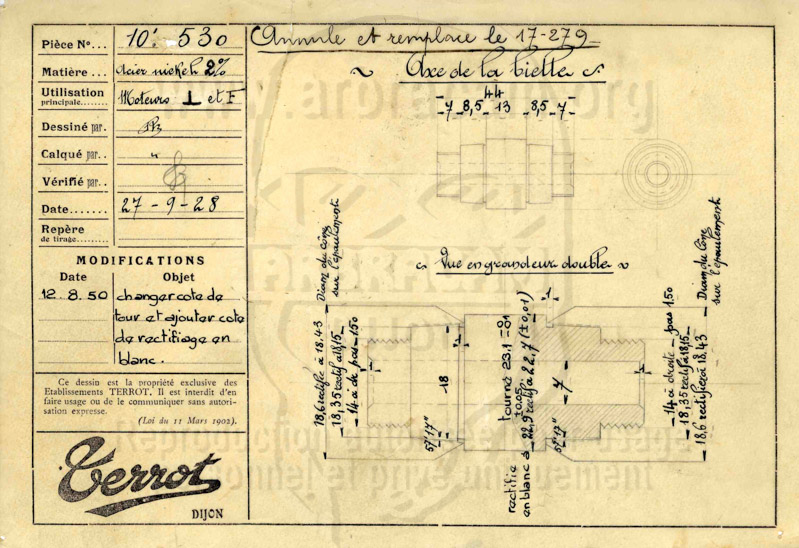 Pièce N°... 10' 530
Matière ... Acier nickel 2%
Utilisation
principale........ Moteurs ⊥ et F
Dessiné par.
Calqué par.. "
Vérifié par..
Date....... 27 - 9 - 28
Repère
de tirage........
MODIFICATIONS
Date Objet
12.8.50 changer cote de
tour et ajouter cote
de rectifiage en
blanc.
Ce dessin est la propriété exclusive des
Etablissements TERROT. Il est interdit d'en
faire usage ou de le communiquer sans autori-
sation expresse.
(Loi du 11 Mars 1902).
Terrot
DIJON
Annule et remplace le 17-279
Axe de la bielle
44
7 8,5 13 8,5 7
Vue en grandeur double
Diam du cône
sur l'épaulement
18,6 rectifié à 18,43
18,35 rectif à 18,15
14 à de pas 150
1
18
57°17"
rectifié
en blanc à
tourné 23,1 -01
±0,05
22,9 rectif à 22,7 (±0,01)
1
7
57°17"
14 à droite pas 150
18,35 rectif à 18,15
18,6 rectifié à 18,43
Diam du cône
sur l'épaulement
1
www.
.org
Reproduction autorisée pour usage
personnel et privé uniquement